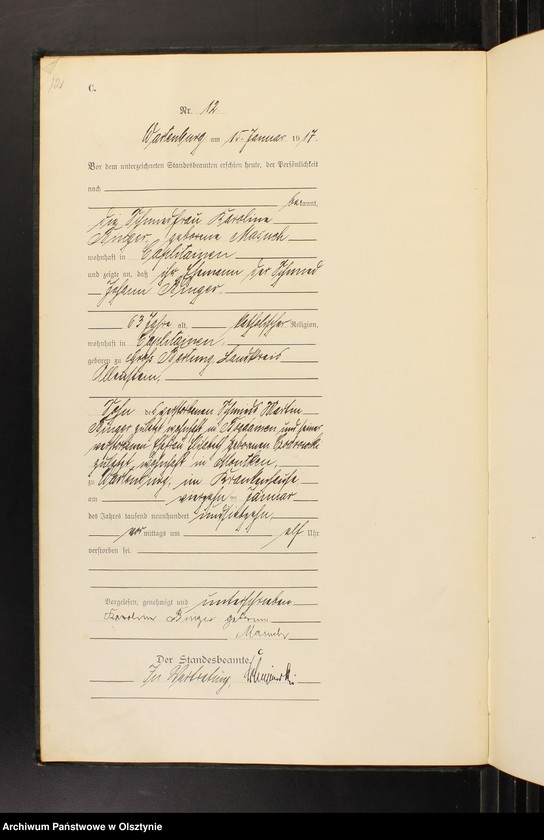 C.
Nr. 12
Wartenburg am 15. Januar 1917.
Vor dem unterzeichneten Standesbeamten erschien heute, der Persönlichkeit
nach
bekannt,
die Schmiedfrau Karoline
geborene Masuch
wohnhaft in
und zeigte an, daß ihr Ehemann der Schmied
Johann
63 Jahre alt, katholischer Religion,
wohnhaft in
geboren zu Groß Bertung Landkreis
Allenstein,
Sohn des verstorbenen Schmieds Martin
zuletzt wohnhaft in und seiner
verstorbenen Ehefrau Elisabeth geborenen
zuletzt wohnhaft in
zu Wartenburg, im Krankenhause,
am vierzehn Januar
des Jahres tausend neunhundert und siebzehn
vormittags um elf Uhr
verstorben sei.
Vorgelesen, genehmigt und unterschrieben
geborene
Der Standesbeamte.
In Vertretung.
Archiwum Państwowe w Olsztynie